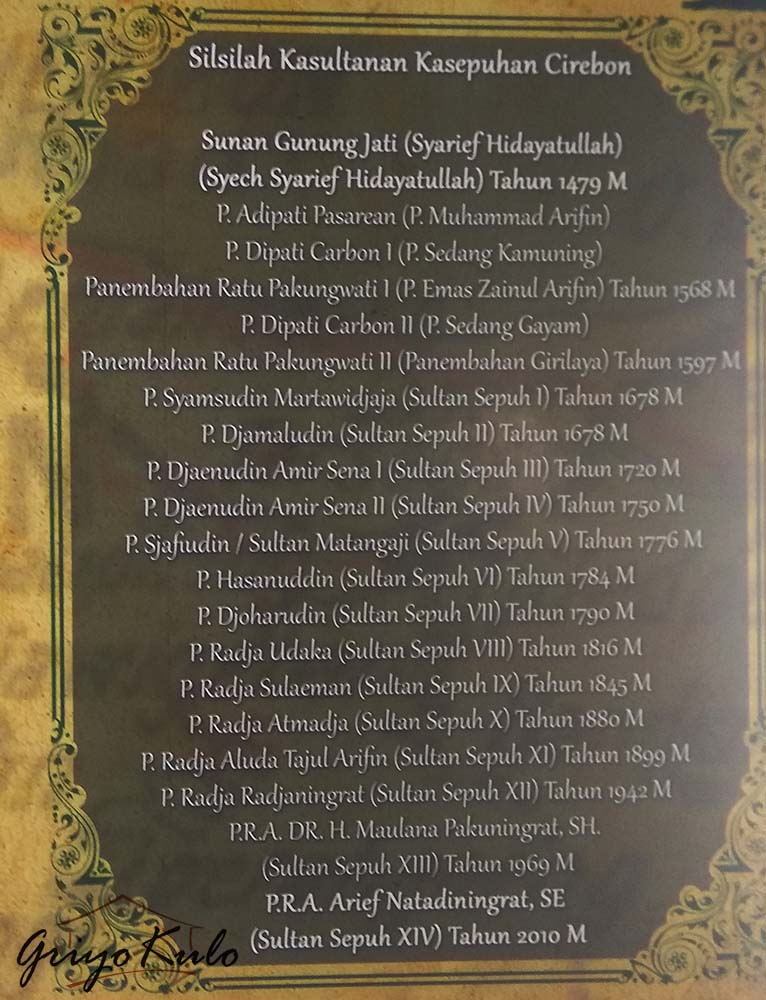 Silsilah Kasultanan Kasepuhan Cirebon
Sunan Gunung Jati (Syarief Hidayatullah)
(Syech Syarief Hidayatullah) Tahun 1479 M
P. Adipati Pasarean (P. Muhammad Arifin)
P. Dipati Carbon I (P. Sedang Kamuning)
Panembahan Ratu Pakungwati I (P. Emas Zainul Arifin) Tahun 1568 M
P. Dipati Carbon II (P. Sedang Gayam)
Panembahan Ratu Pakungwati II (Panembahan Girilaya) Tahun 1597 M
P. Syamsudin Martawidjaja (Sultan Sepuh I) Tahun 1678 M
P. Djamaludin (Sultan Sepuh II) Tahun 1678 M
P. Djaenudin Amir Sena I (Sultan Sepuh III) Tahun 1720 M
P. Djaenudin Amir Sena II (Sultan Sepuh IV) Tahun 1750 M
P. Sjafiudin / Sultan Matangaji (Sultan Sepuh V) Tahun 1776 M
P. Hasanuddin (Sultan Sepuh VI) Tahun 1784 M
P. Djoharudin (Sultan Sepuh VII) Tahun 1790 M
P. Radja Udaka (Sultan Sepuh VIII) Tahun 1816 M
P. Radja Sulaeman (Sultan Sepuh IX) Tahun 1845 M
P. Radja Atmadja (Sultan Sepuh X) Tahun 1880 M
P. Radja Aluda Tajul Arifin (Sultan Sepuh XI) Tahun 1899 M
P. Radja Radjaningrat (Sultan Sepuh XII) Tahun 1942 M
P.R.A. DR. H. Maulana Pakuningrat, SH.
(Sultan Sepuh XIII) Tahun 1969 M
P.R.A. Arief Natadiningrat, SE
(Sultan Sepuh XIV) Tahun 2010 M
Griyo Kulo